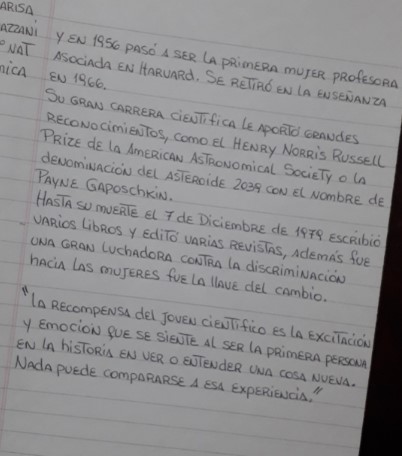 ARISA
AZZANI
NAT
Y EN 1956 PASÓ A SER LA PRIMERA MUJER PROFESORA
ASOCIADA EN HARVARD. SE RETIRÓ EN LA ENSEÑANZA
EN 1966.
SU GRAN CARRERA CIENTÍFICA LE APORTÓ GRANDES
RECONOCIMIENTOS, COMO EL HENRY NORRIS RUSSELL
PRIZE DE LA AMERICAN ASTRONOMICAL SOCIETY O LA
DENOMINACIÓN DEL ASTEROIDE 2039 CON EL NOMBRE DE
PAYNE GAPOSCHKIN.
HASTA SU MUERTE EL 7 DE DICIEMBRE DE 1979 ESCRIBIÓ
VARIOS LIBROS Y EDITÓ VARIAS REVISTAS, ADEMÁS FUE
UNA GRAN LUCHADORA CONTRA LA DISCRIMINACIÓN
HACIA LAS MUJERES FUE LA LLAVE DEL CAMBIO.
"LA RECOMPENSA DEL JOVEN CIENTÍFICO ES LA EXCITACIÓN
Y EMOCIÓN QUE SE SIENTE AL SER LA PRIMERA PERSONA
EN LA HISTORIA EN VER O ENTENDER UNA COSA NUEVA.
NADA PUEDE COMPARARSE A ESA EXPERIENCIA."